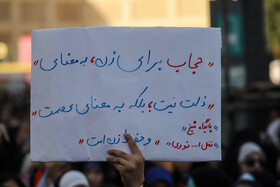 «حجاب برای زن، به معنای»
«ذلت نیست؛ بلکه به معنای عصمت
و حفظ زن است»
«پایگاه شیخ
فضل ا... نوری»